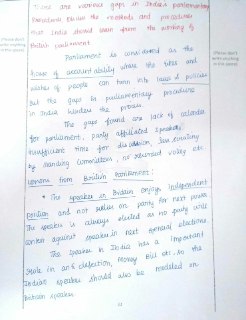 There are various gaps in Indian parliamentary
procedure. Show the methods and procedures
that India should learn from the working of
British parliament.
Parliament is considered as the
house of accountability where the titles and
wishes of people can turn into laws & policies
But the gaps in parliamentary procedure
in India hinders the process.
The gaps found are lack of calendar
for parliament, party affiliated speaker,
insufficient time for discussion, less scrutiny
by standing committees, no recurrent voting etc.
Lessons from British Parliament:
* The speaker in Britain enjoys independent
position and not relies on party for next power
The speaker is always elected as no party will
contest against speaker in next general elections.
The speaker in India has a important
state in anti defection, money Bill etc. so the
Indian speaker should also be modelled on
Britain speaker